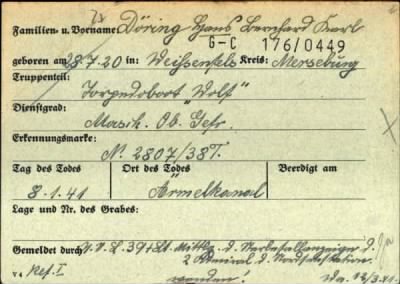 Familien- u. Vorname Döring Hans Bernhard Karl
G-C 176/0449
geboren am 28.7.20 in Weißenfels Kreis: Merseburg
Truppenteil:
Torpedoboot "Wolf"
Dienstgrad:
Masch. Ob. Gefr.
Erkennungsmarke:
N. 2807/38T.
Tag des Todes Ort des Todes Beerdigt am
8.1.41 Ärmelkanal
Lage und Nr. des Grabes:
Gemeldet durch V.L. 39 lt. Mittlg. d.
2 Admiral d. Nordseestation
V4 Ref. I